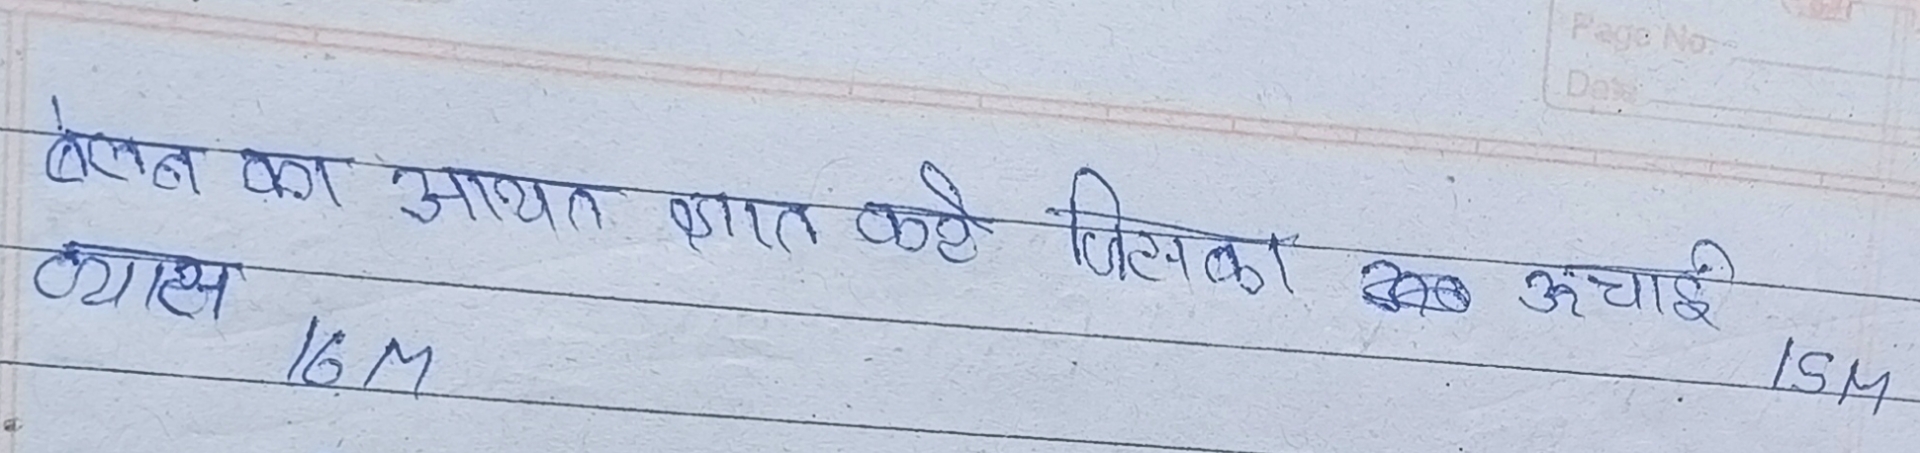 Page No.
Date
बेलन का आयत ज्ञात करे जिसका ऊंचाई 15M
व्यास 16 M